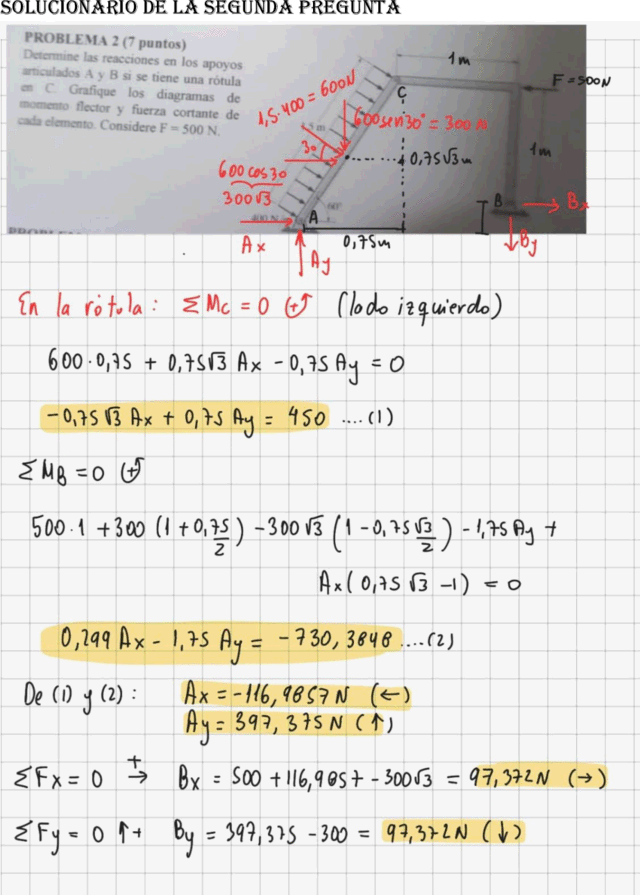 SOLUCIONARIO DE LA SEGUNDA PREGUNTA
PROBLEMA 2 (7 puntos)
Determine las reacciones en los apoyos
articulados A y B si se tiene una rótula
en C. Grafique los diagramas de
momento flector y fuerza cortante de
cada elemento. Considere F = 500 N.
1m
F = 500N
C
1,5·400 = 600N
600sen30° = 300N
30
0,75√3m
1m
600 cos30
300√3
60°
B
Bx
A
By
Ax
Ay
0,75m
En la rótula: ΣMc = 0 (+↺) (lado izquierdo)
600·0,75 + 0,75√3 Ax - 0,75 Ay = 0
-0,75√3 Ax + 0,75 Ay = 450 ....(1)
ΣMB = 0 (+↺)
500·1 + 300 (1 + 0,75/2) - 300√3 (1 - 0,75√3/2) - 1,75 Ay +
Ax (0,75√3 - 1) = 0
0,299 Ax - 1,75 Ay = -730,3848 ....(2)
De (1) y (2): Ax = -116,9857 N (←)
Ay = 397,375 N (↑)
ΣFx = 0 +→ Bx = 500 + 116,9857 - 300√3 = 97,372N (→)
ΣFy = 0 ↑+ By = 397,375 - 300 = 97,372N (↓)